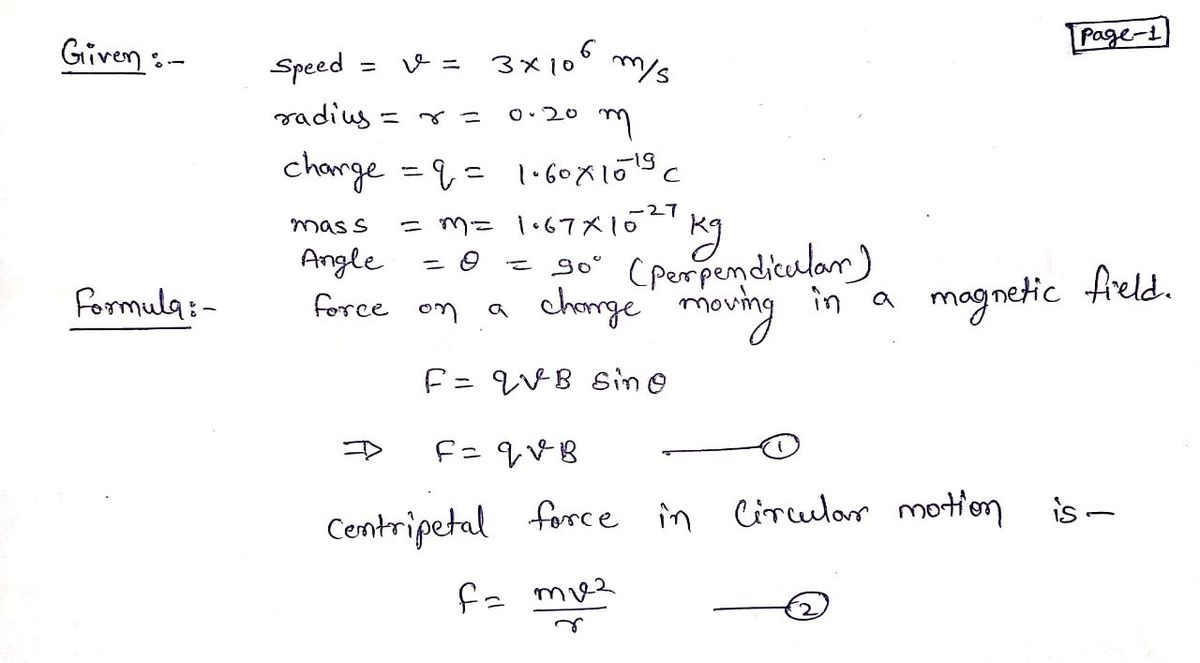 Page-1
Given :-
Speed = v = 3×10⁶ m/s
radius = r = 0.20 m
charge = q = 1.60×10⁻¹⁹ C
mass = m = 1.67×10⁻²⁷ kg
Angle = θ = 90° (perpendicular)
Formula:- force on a charge moving in a magnetic field.
F = qvB sinθ
⇒ F = qvB ——— ①
Centripetal force in Circular motion is –
f = mv²/r ——— ②